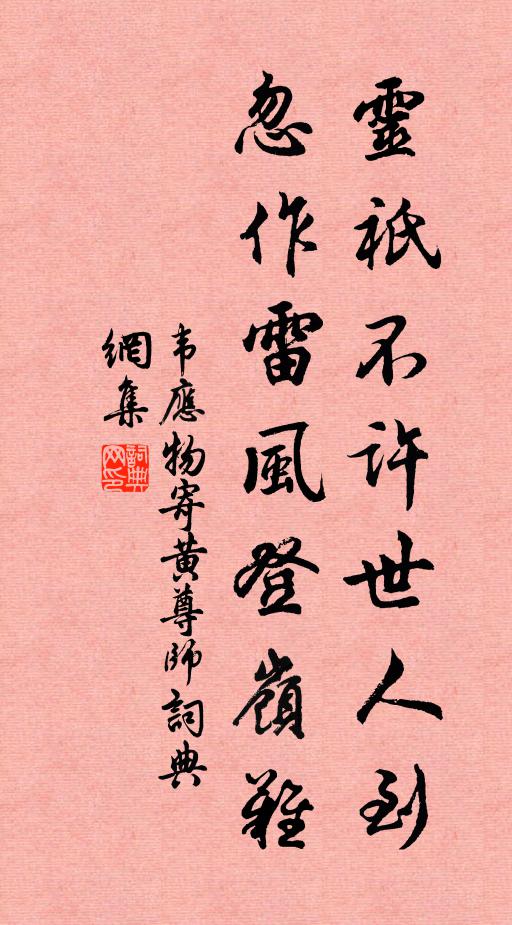 靈祇不許世人到
忽作雷風登嶺難
韦應物寄黄尊師詞典
網集
詞典网印